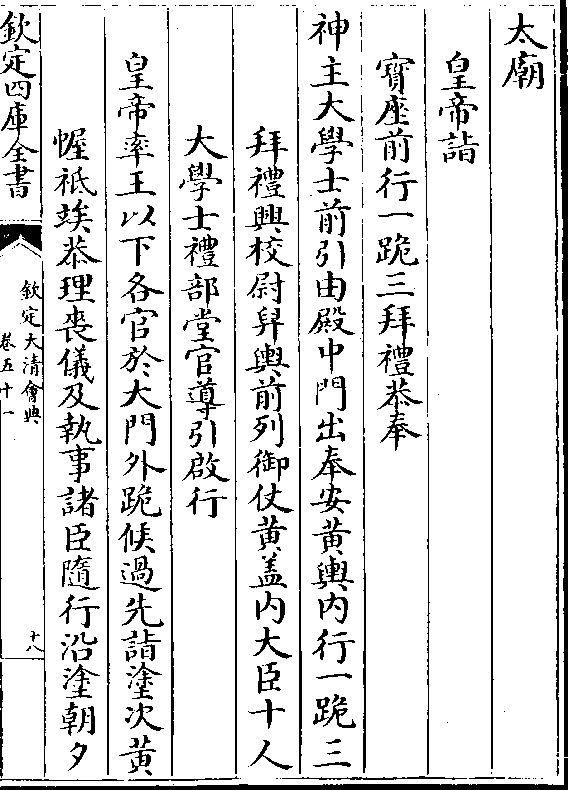 太廟
皇帝詣
寳座前行一跪三拜禮恭奉
神主大學士前引由殿中門出奉安黄輿内行一跪三
拜禮興校尉舁輿前列御仗黄盖内大臣十人
大學士禮部堂官導引啟行
皇帝率王以下各官於大門外跪候過先詣塗次黄
幄祗竢恭理喪儀及執事諸臣隨行沿塗朝夕
欽定四庫全書
欽定大清會典
卷五十一
十八